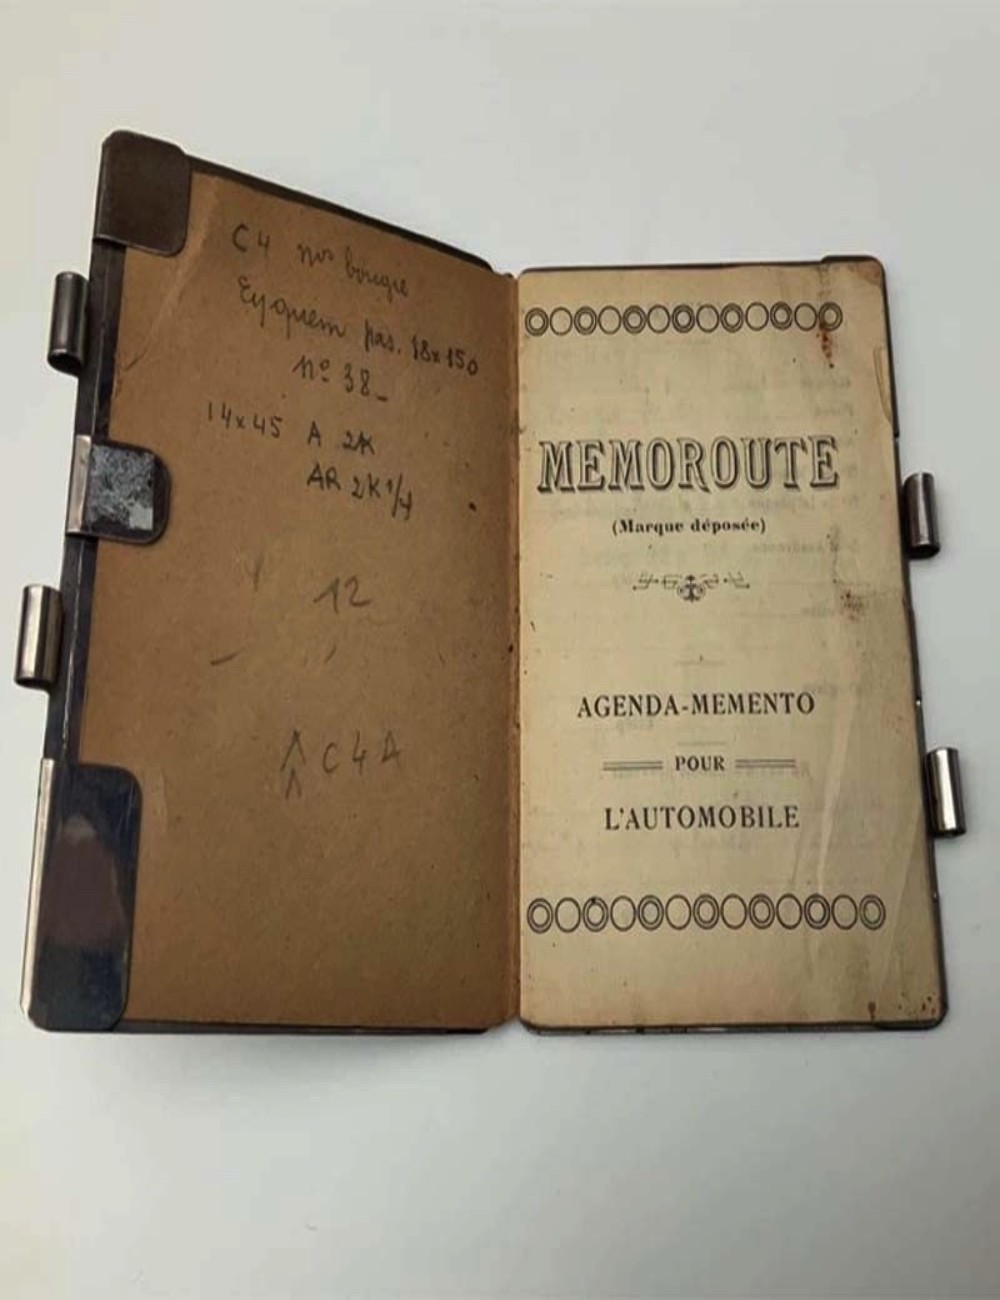 C4 nos bougie
Eyquem pas. 18x150
nº 38_
14x45 A 2K
AR 2K 1/4
12
C4A
MEMOROUTE
(Marque déposée)
AGENDA-MEMENTO
POUR
L'AUTOMOBILE